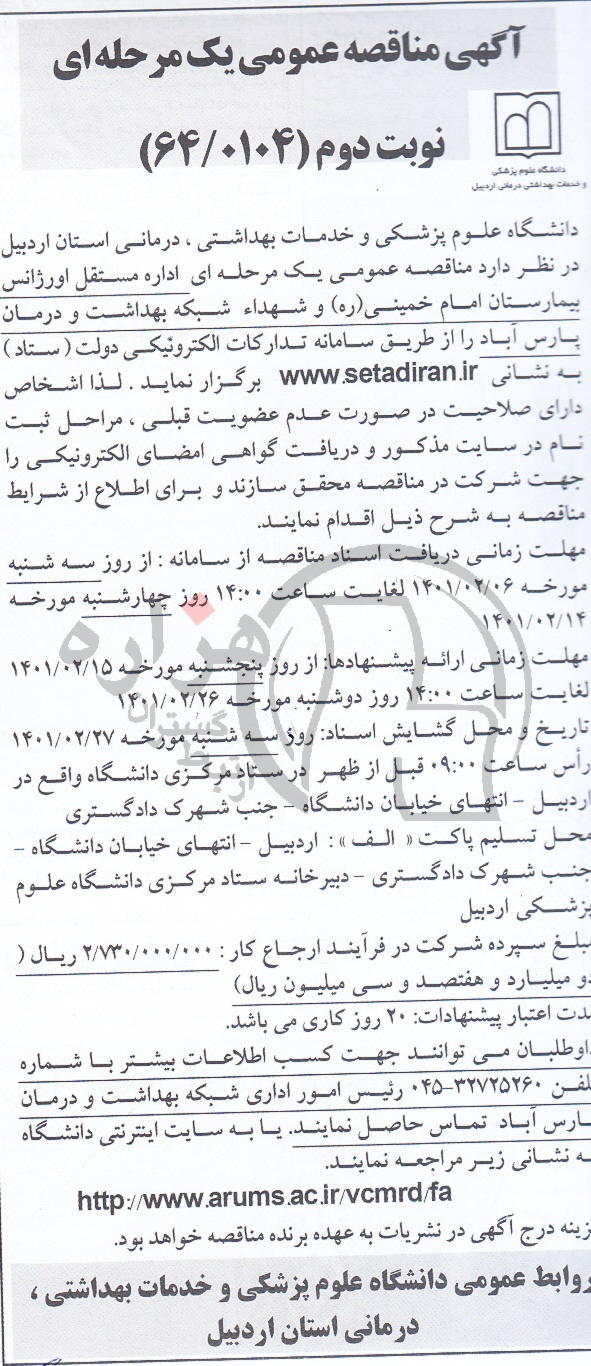 آگهی مناقصه عمومی یک مرحله ای
نوبت دوم (۶۴/۰۱۰۴)
دانشگاه علوم پزشکی
و خدمات بهداشتی درمانی اردبیل
دانشگاه علوم پزشکی و خدمات بهداشتی ، درمانی استان اردبیل
در نظر دارد مناقصه عمومی یک مرحله ای اداره مستقل اورژانس
بیمارستان امام خمینی(ره) و شهداء شبکه بهداشت و درمان
پارس آباد را از طریق سامانه تدارکات الکترونیکی دولت ( ستاد )
به نشانی www.setadiran.ir برگزار نماید . لذا اشخاص
دارای صلاحیت در صورت عدم عضویت قبلی ، مراحل ثبت
نام در سایت مذکور و دریافت گواهی امضای الکترونیکی را
جهت شرکت در مناقصه محقق سازند و برای اطلاع از شرایط
مناقصه به شرح ذیل اقدام نمایند.
مهلت زمانی دریافت اسناد مناقصه از سامانه : از روز سه شنبه
مورخه ۱۴۰۱/۰۲/۰۶ لغایت ساعت ۱۴:۰۰ روز چهارشنبه مورخه
۱۴۰۱/۰۲/۱۴
مهلت زمانی ارائه پیشنهادها: از روز پنجشنبه مورخه ۱۴۰۱/۰۲/۱۵
لغایت ساعت ۱۴:۰۰ روز دوشنبه مورخه ۱۴۰۱/۰۲/۲۶
تاریخ و محل گشایش اسناد: روز سه شنبه مورخه ۱۴۰۱/۰۲/۲۷
رأس ساعت ۰۹:۰۰ قبل از ظهر در ستاد مرکزی دانشگاه واقع در
اردبیل – انتهای خیابان دانشگاه – جنب شهرک دادگستری
محل تسلیم پاکت « الف » : اردبیل – انتهای خیابان دانشگاه –
جنب شهرک دادگستری – دبیرخانه ستاد مرکزی دانشگاه علوم
پزشکی اردبیل
مبلغ سپرده شرکت در فرآیند ارجاع کار : ۲/۷۳۰/۰۰۰/۰۰۰ ریال (
دو میلیارد و هفتصد و سی میلیون ریال)
مدت اعتبار پیشنهادات: ۲۰ روز کاری می باشد.
داوطلبان می توانند جهت کسب اطلاعات بیشتر با شماره
تلفن ۳۲۷۲۵۲۶۰-۰۴۵ رئیس امور اداری شبکه بهداشت و درمان
پارس آباد تماس حاصل نمایند. یا به سایت اینترنتی دانشگاه
به نشانی زیر مراجعه نمایند.
http://www.arums.ac.ir/vcmrd/fa
هزینه درج آگهی در نشریات به عهده برنده مناقصه خواهد بود.
روابط عمومی دانشگاه علوم پزشکی و خدمات بهداشتی ،
درمانی استان اردبیل
هزاره
گستران